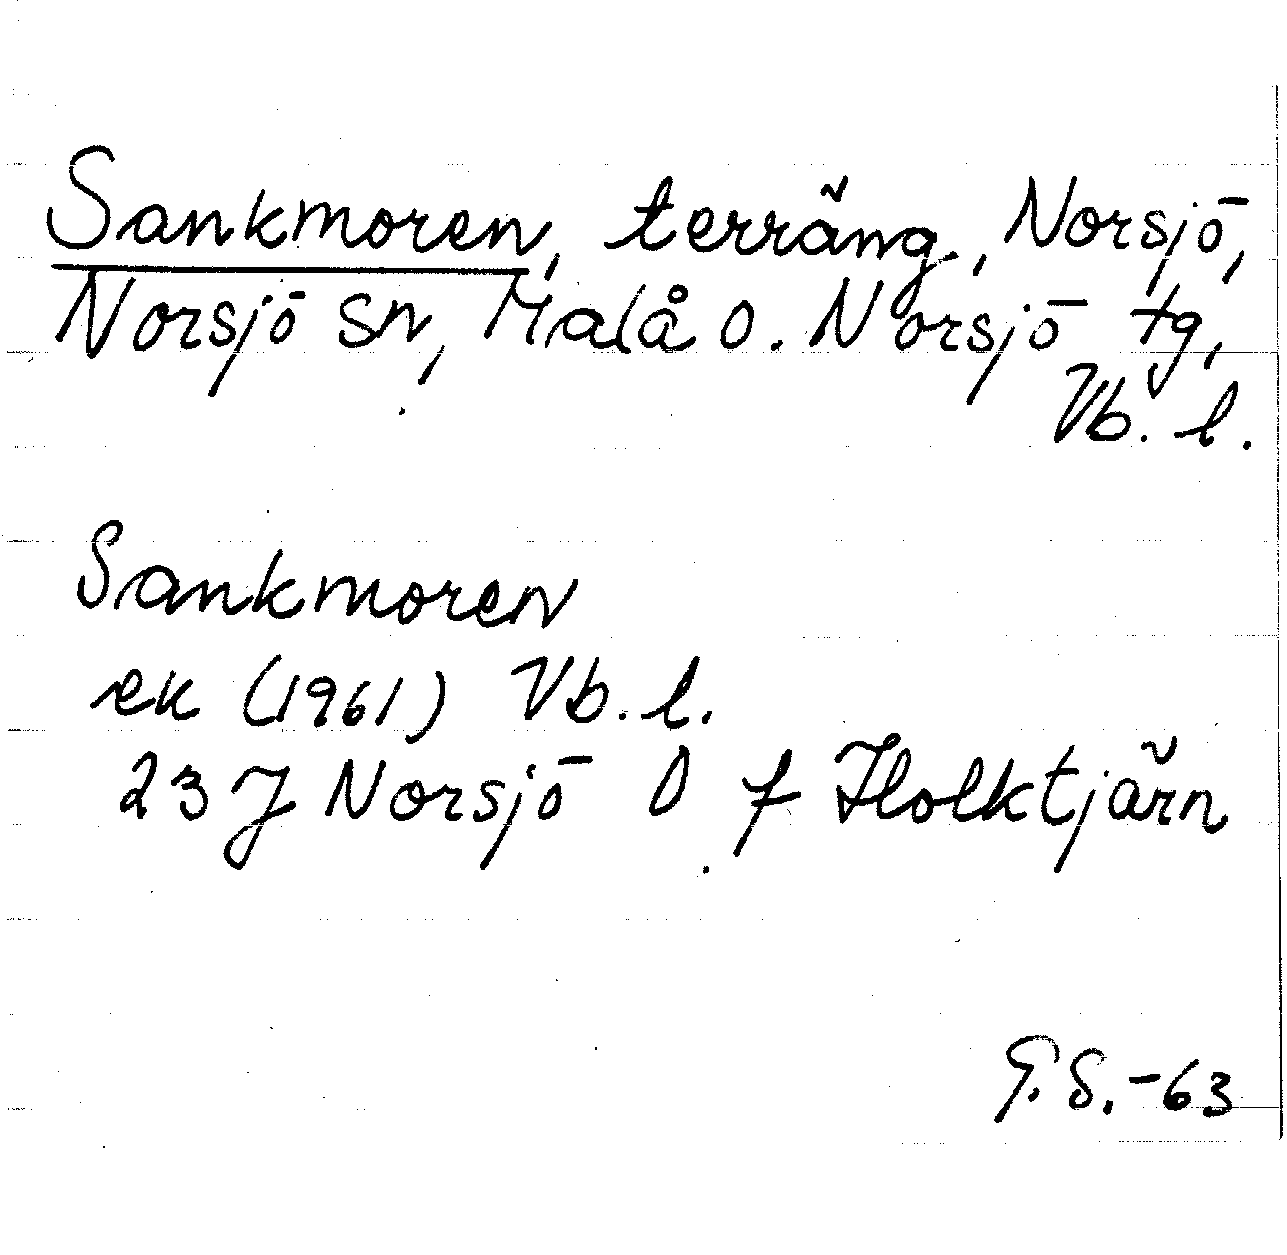 Sankmoren, terräng, Norsjö,
Norsjö sn, Malå o. Norsjö tg,
Vb. l.
Sankmoren
ek (1961) Vb. l.
23 J Norsjö O f Holktjärn
G. S. -63